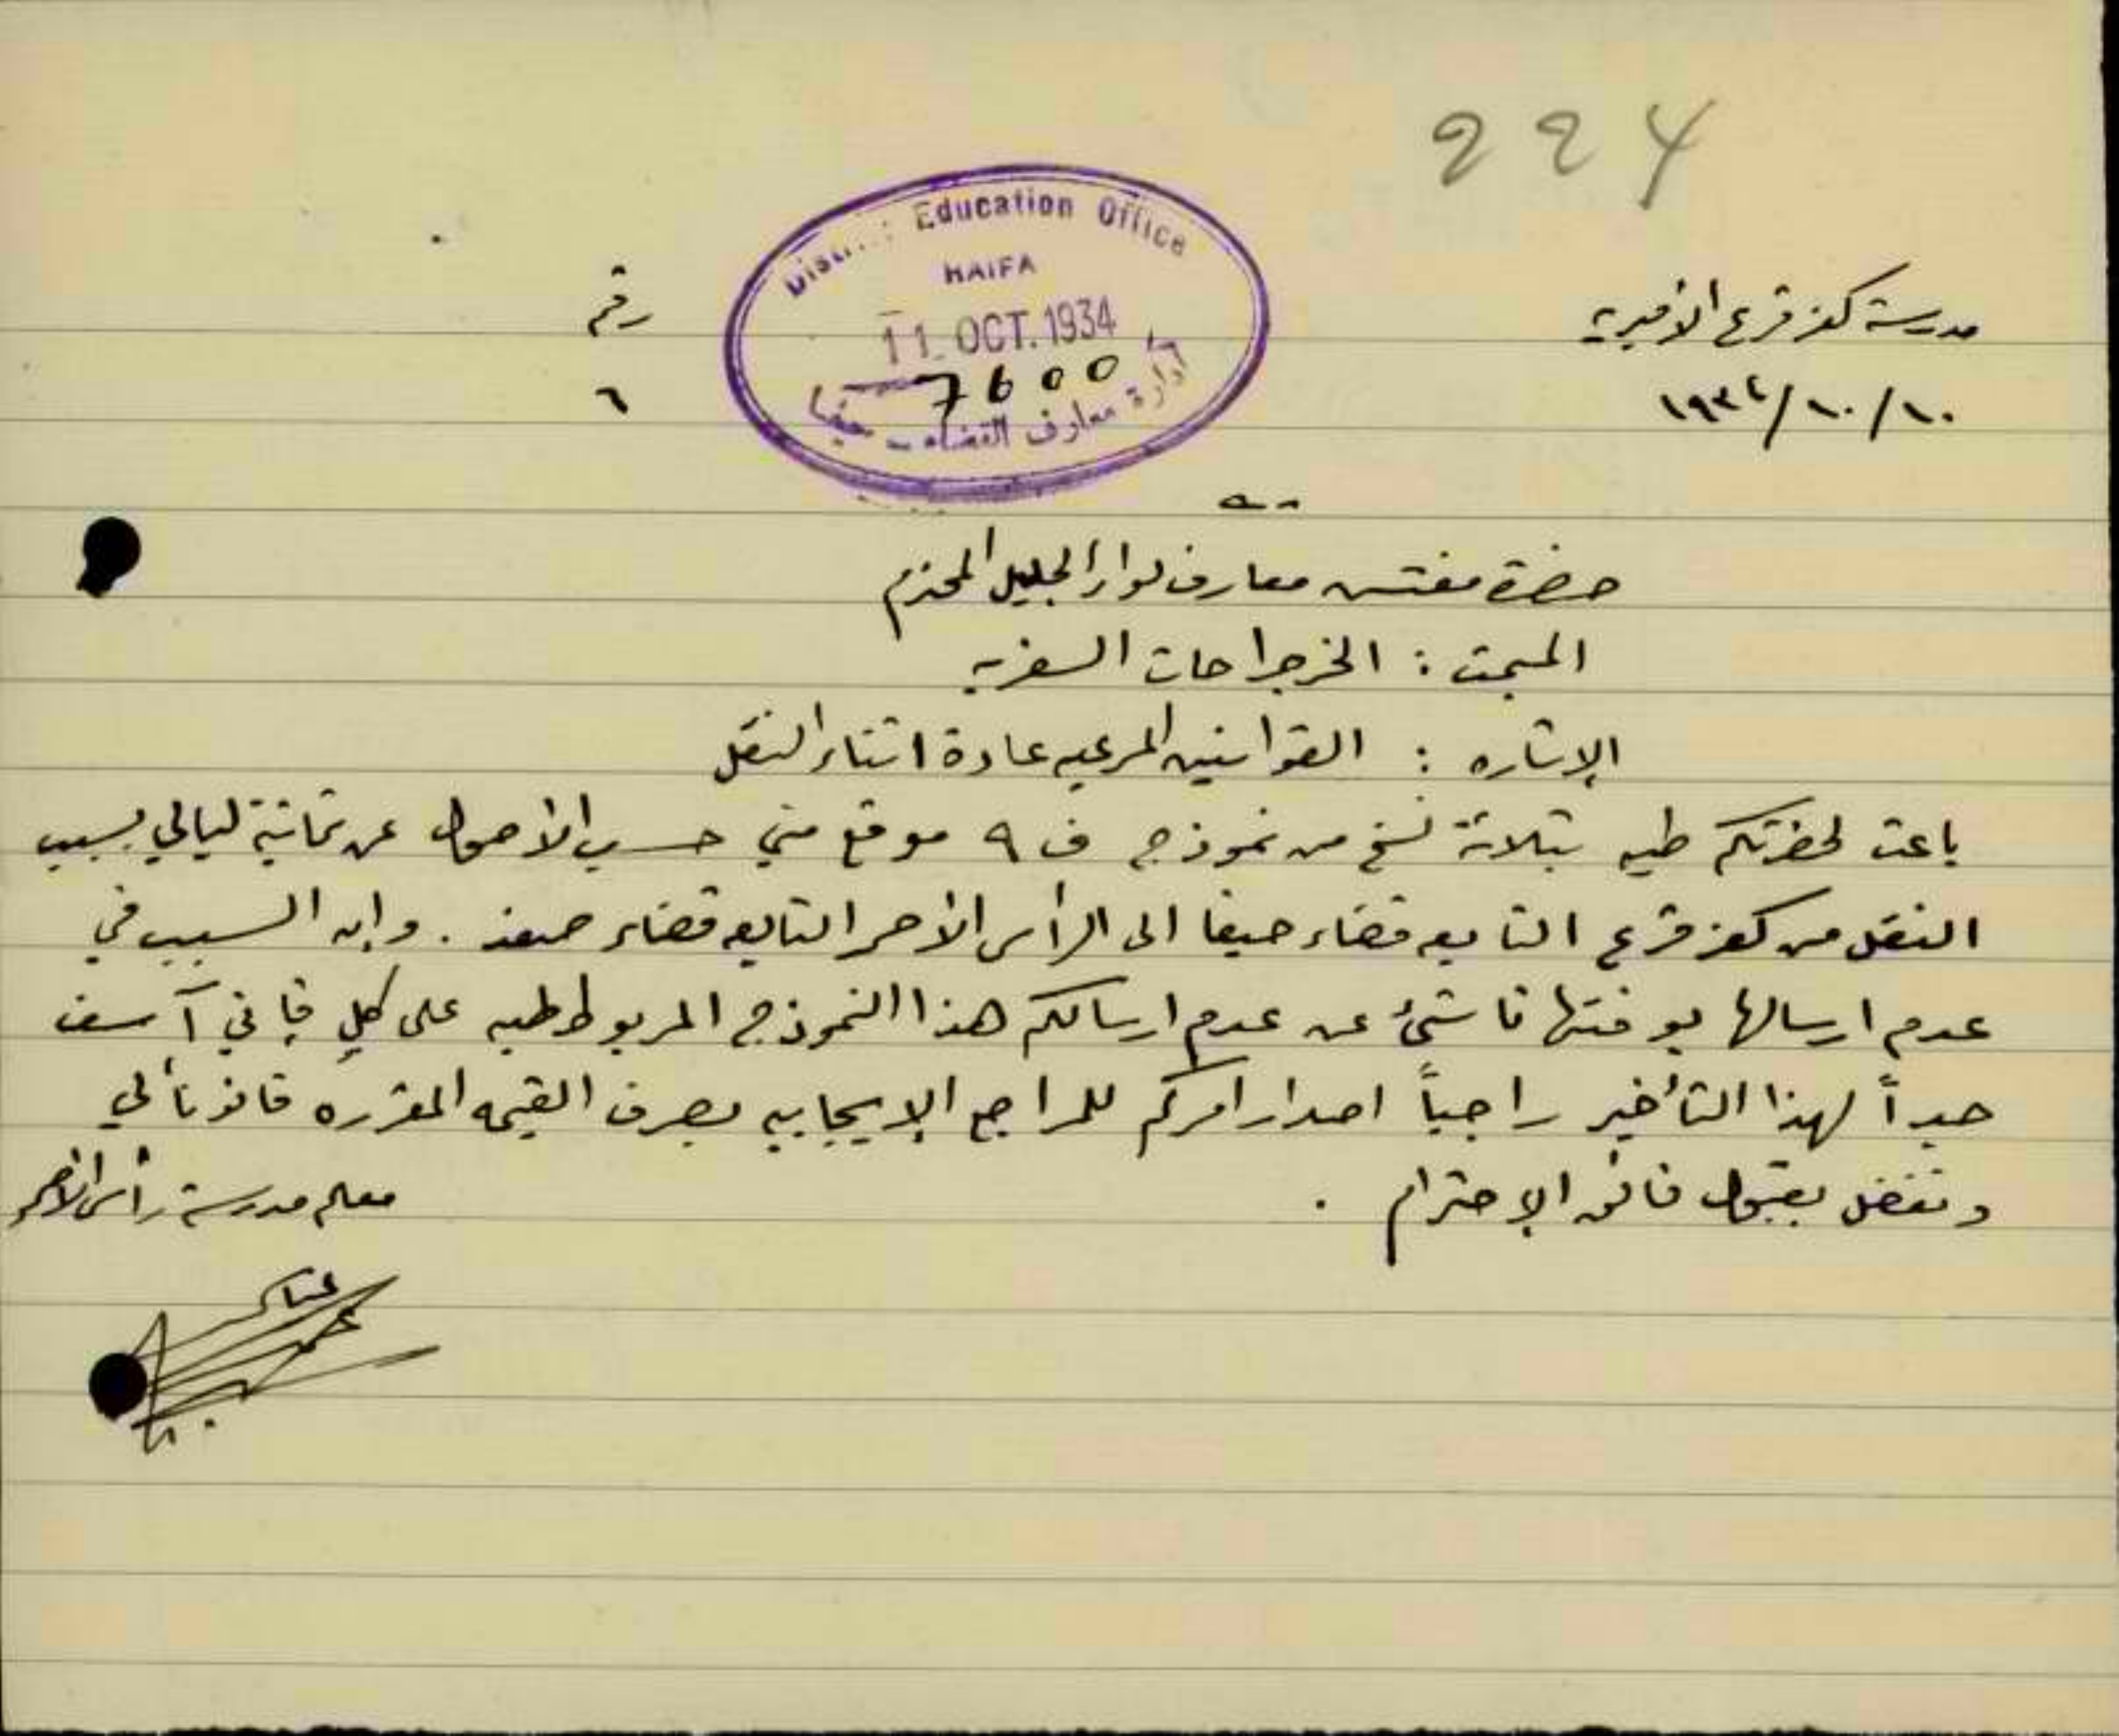 224
District Education Office
HAIFA
11 OCT. 1934
7600
ادارة معارف القضاء - حيفا
مدرسة كفر قرع الاميريه
رقم
١٠/١٠/١٩٣٤
٦
حضرة مفتش معارف لواء الجليل المحترم
المبحث : الخرجراحات السفريه
الإشاره : القوانين المرعيه عادة اثناء النقل
باعث لحضرتكم طيه بثلاثة نسخ من نموذج ف ٩ موقع مني حسب الأصول عن ثمانية ليالي بسبب
النقل من كفر قرع التابعه قضاء حيفا الى الرأس الأحمر التابعه قضاء صفد . وان السبب في
عدم ارسالها بوقتها ناشئ عن عدم ارسالكم هذا النموذج المربوط طيه على كلٍ فإني آسف
جداً لهذا التأخير راجياً اصدار امركم للمراجع الإيجابيه بصرف القيمه المقرره قانوناً لي
وتفضل بقبول فائق الإحترام .
معلم مدرسة رأس الأحمر